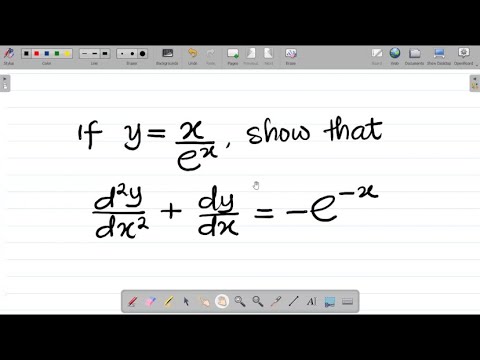 Color Line Eraser Backgrounds Undo Redo Pages Previous Next Erase Board Web Documents Show Desktop OpenBoard
If y = x/e^x, show that
d²y/dx² + dy/dx = -e^-x